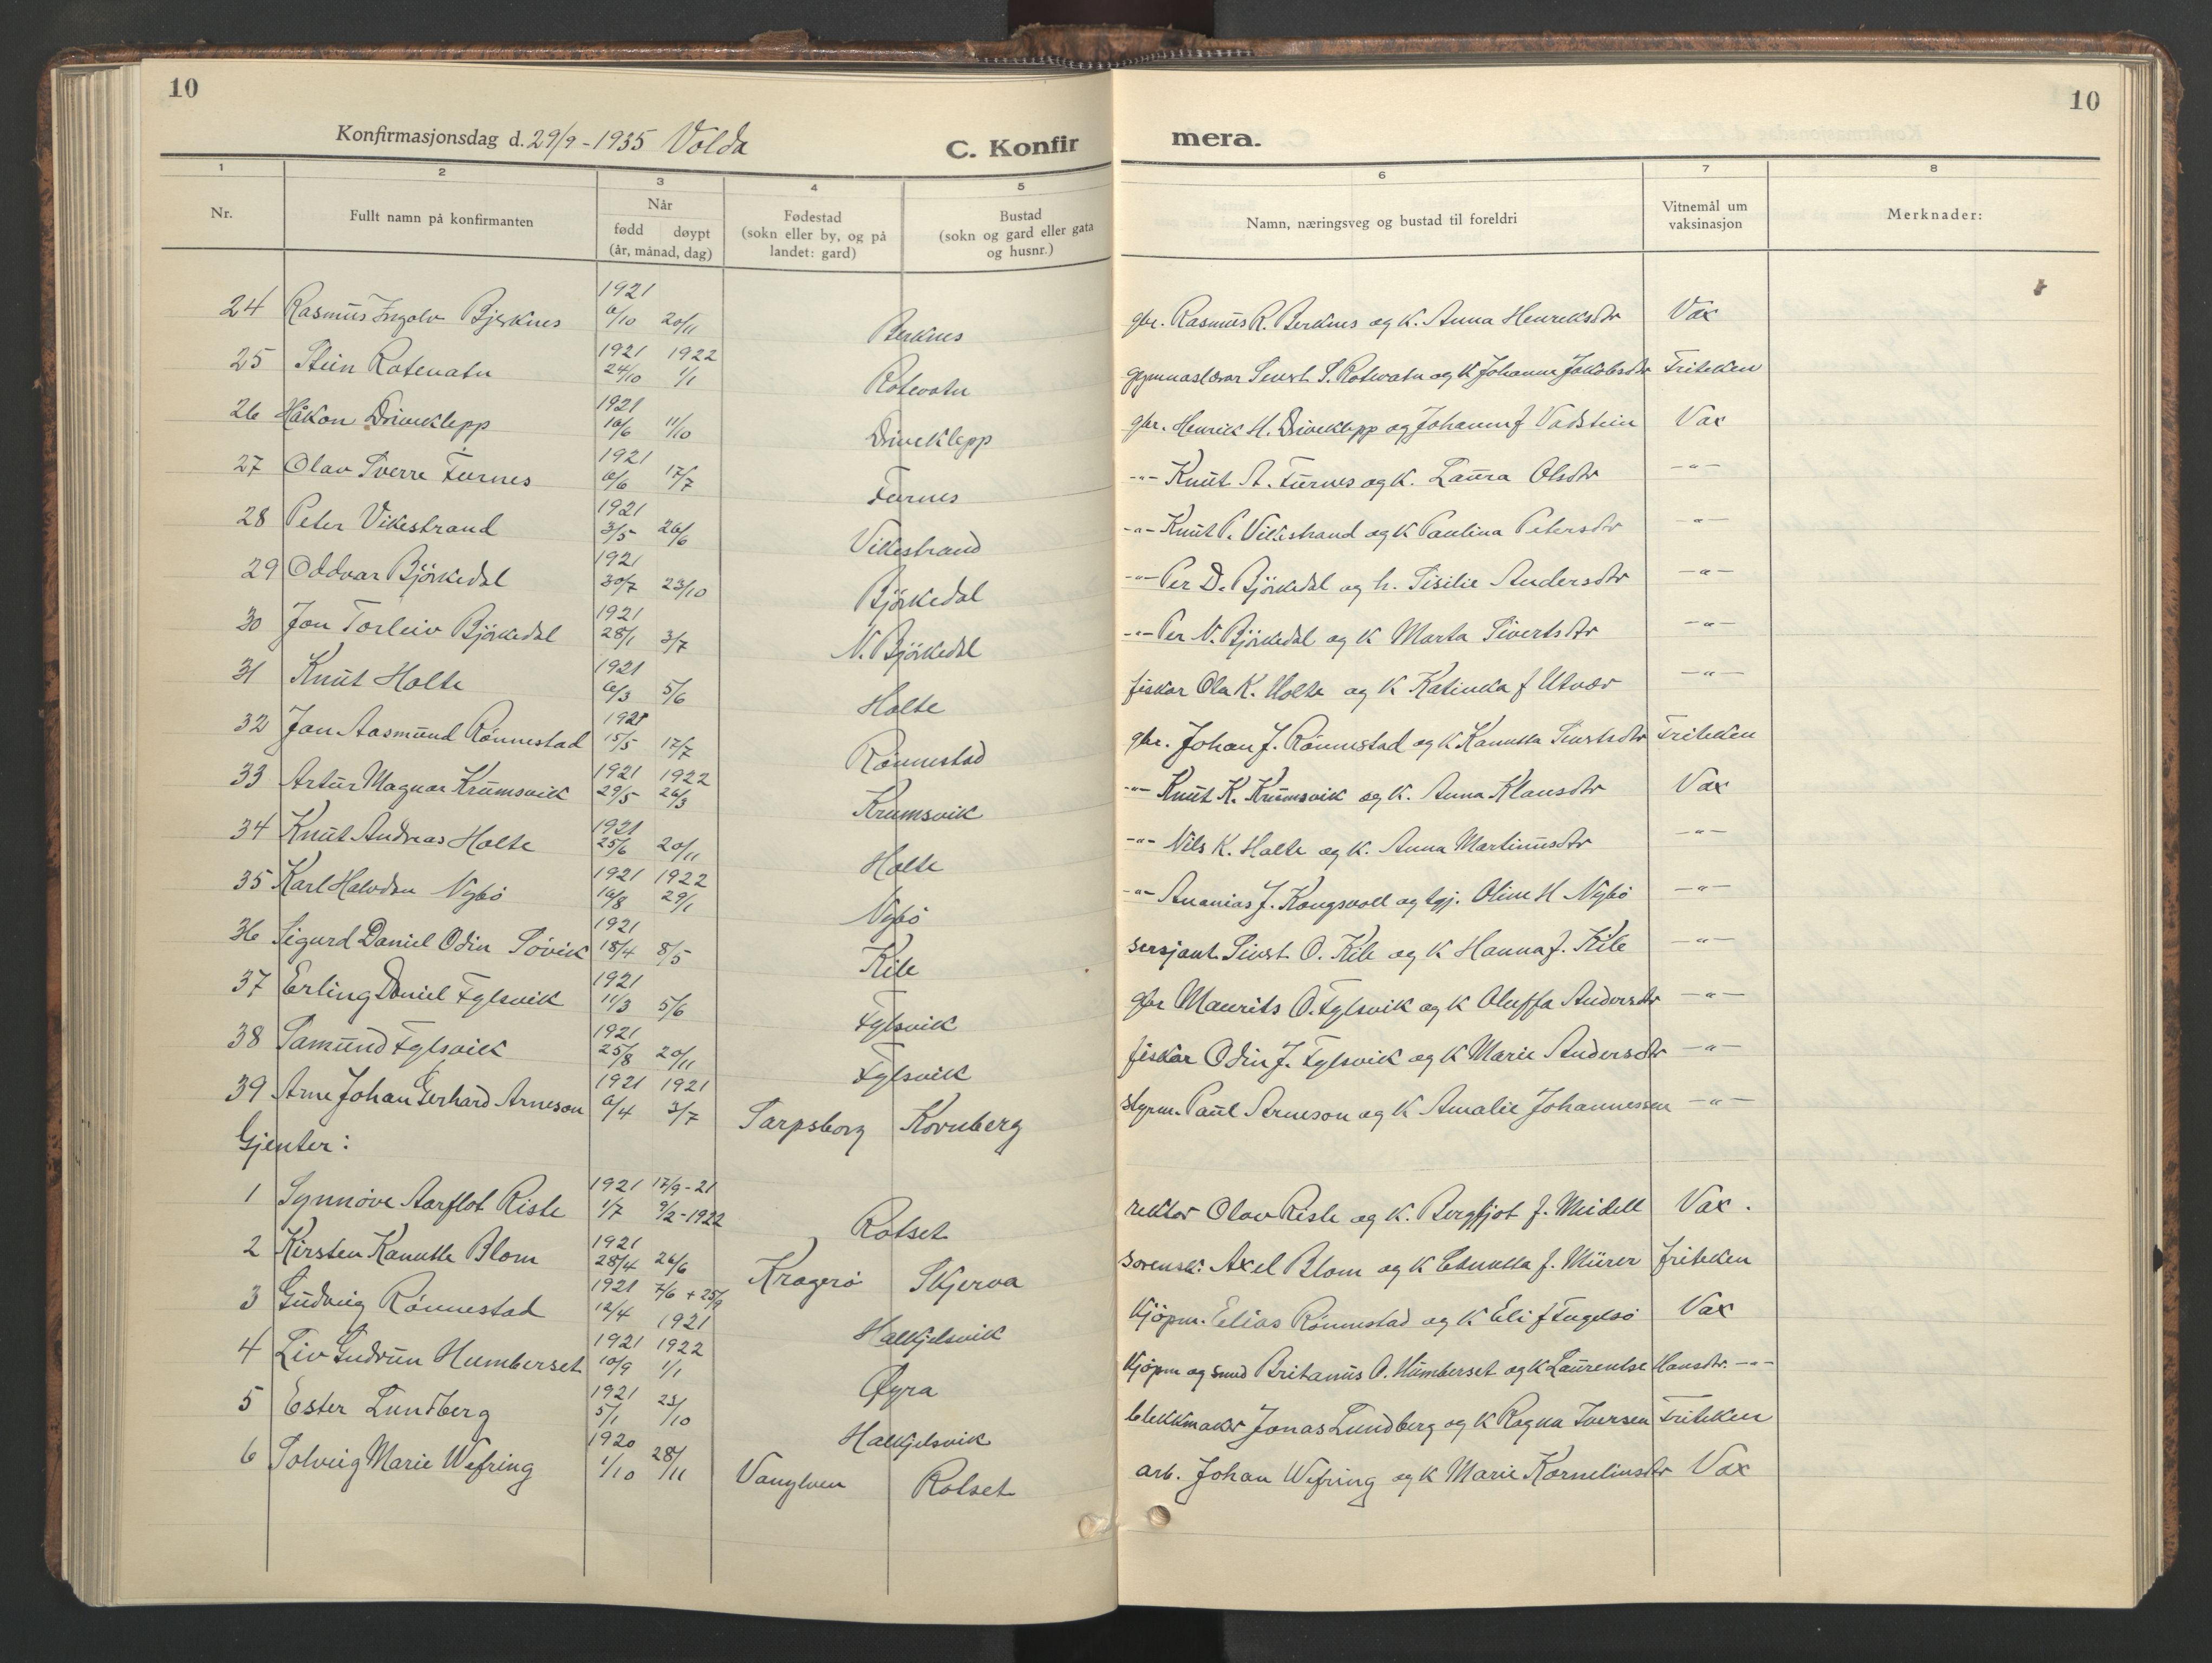 10
Konfirmasjonsdag d. 29/9 - 1935 Volda
C. Konfir mera.
10
1 2 3 4 5 6 7 8
Nr. Fullt namn på konfirmanten Når fødd døypt (år, månad, dag) Fødestad (sokn eller by, og på landet: gard) Bustad (sokn og gard eller gata og husnr.) Namn, næringsveg og bustad til foreldri Vitnemål um vaksinasjon Merknader:
24 Rasmus Ingolv Bjerknes 1921 6/10 20/11 Berknes gbr. Rasmus R. Berknes og k. Anna Henriksdtr Vax
25 Stein Rotevatn 1921 24/10 1922 1/1 Rotevatn gymnaslærar Sivert S. Rotevatn og k Johanna Jakobsdtr Friteken
26 Håkon Driveklepp 1921 10/6 11/10 Driveklepp gbr. Henrik H. Driveklepp og Johanne f Vadstein Vax
27 Olav Sverre Furnes 1921 6/6 17/7 Furnes -"- Knut A. Furnes og k. Laura Olsdtr -"-
28 Peter Vikestrand 1921 3/5 26/6 Vikestrand -"- Knut P. Vikestrand og k Paulina Petersdtr -"-
29 Oddvar Björkedal 1921 30/7 23/10 Björkedal -"- Per D. Björkedal og h. Sisilie Andersdtr -"-
30 Jon Torleiv Björkedal 1921 28/1 3/7 N. Björkedal -"- Per N. Björkedal og k Marta Sivertsdtr -"-
31 Knut Holte 1921 6/3 5/6 Holte fiskar Ola K. Holte og k Katinka f Utvær -"-
32 Jan Aasmund Rönnestad 1921 15/5 17/7 Rönnestad gbr. Johan J. Rönnestad og k Kanutta Sivertsdtr Friteken
33 Artur Magnar Krumsvik 1921 29/5 1922 26/3 Krumsvik -"- Knut K. Krumsvik og k. Anna Klausdtr Vax
34 Knut Andreas Holte 1921 25/6 20/11 Holte -"- Nils K. Holte og k. Anna Martinusdtr -"-
35 Karl Halvdan Nybö 1921 16/8 1922 29/1 Nybö -"- Ananias J. Kongsvoll og tgj. Oline H Nybö -"-
36 Sigurd Daniel Odin Sövik 1921 18/4 8/5 Kile sersjant Sivert O. Kile og k Hanna f. Kile -"-
37 Erling Daniel Fylsvik 1921 11/3 5/6 Fylsvik gbr Maurits O. Fylsvik og k Oluffa Andersdtr -"-
38 Samund Fylsvik 1921 25/8 20/11 Fylsvik fiskar Odin J. Fylsvik og k Marie Andersdtr -"-
39 Arne Johan Gerhard Arneson 1921 6/4 1921 3/7 Sarpsborg Kornberg styrm. Paul Arneson og k Amalie Johannessen -"-
Gjenter:
1 Synnöve Aarflot Riste 1921 1/7 17/9 - 21 9/2 - 1922 Rotset rektor Olav Riste og k. Bergljot f. Meidell Vax.
2 Kirsten Kanutte Blom 1921 28/4 26/6 Kragerö Skjerva sorensk. Axel Blom og k f. Mürer friteken
3 Gudveig Rönnestad 1921 12/4 7/6 + 25/9 1921 Halkjelsvik Kjöpm. Elias Rönnestad og k Eli f Fugelsö Vax
4 Liv Gudrun Humberset 1921 10/9 1922 1/1 Øyra Kjöpm og smed Britanus O. Humberset og k Laurentse Hansdtr. -"-
5 Ester Lundberg 1921 5/1 23/10 Halkjelsvik blekkmakar Jonas Lundberg og k Ragna Iversen Friteken
6 Solveig Marie Wefring 1920 1/10 28/11 Vanylven Rotset arb. Johan Wefring og k Marie Korneliusdtr Vax